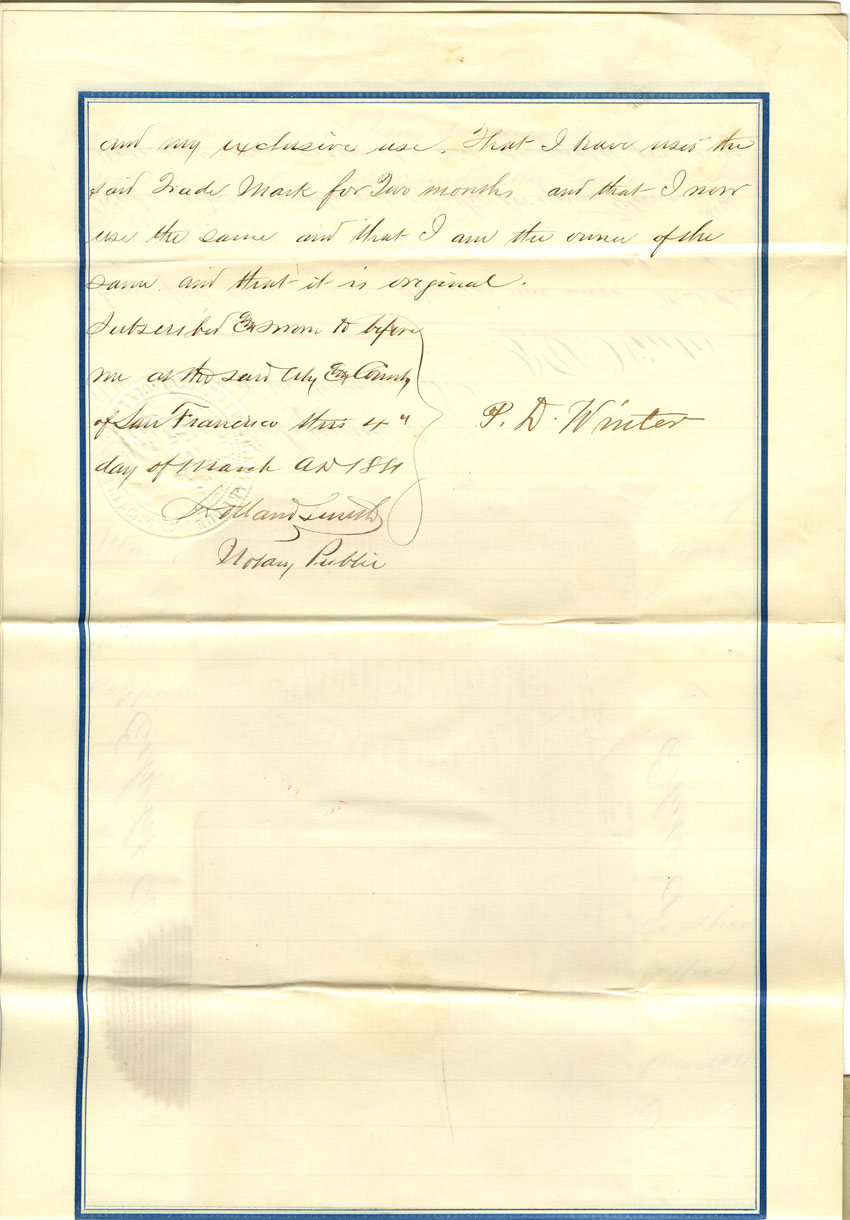 and my exclusive use. That I have used the
said Trade Mark for Two months and that I now
use the same and that I am the owner of the
same and that it is original.
Subscribed & sworn to before
me at the said City & County
of San Francisco this 4"
day of March AD 1881
Holland Smith
Notary Public
P. D. Winter